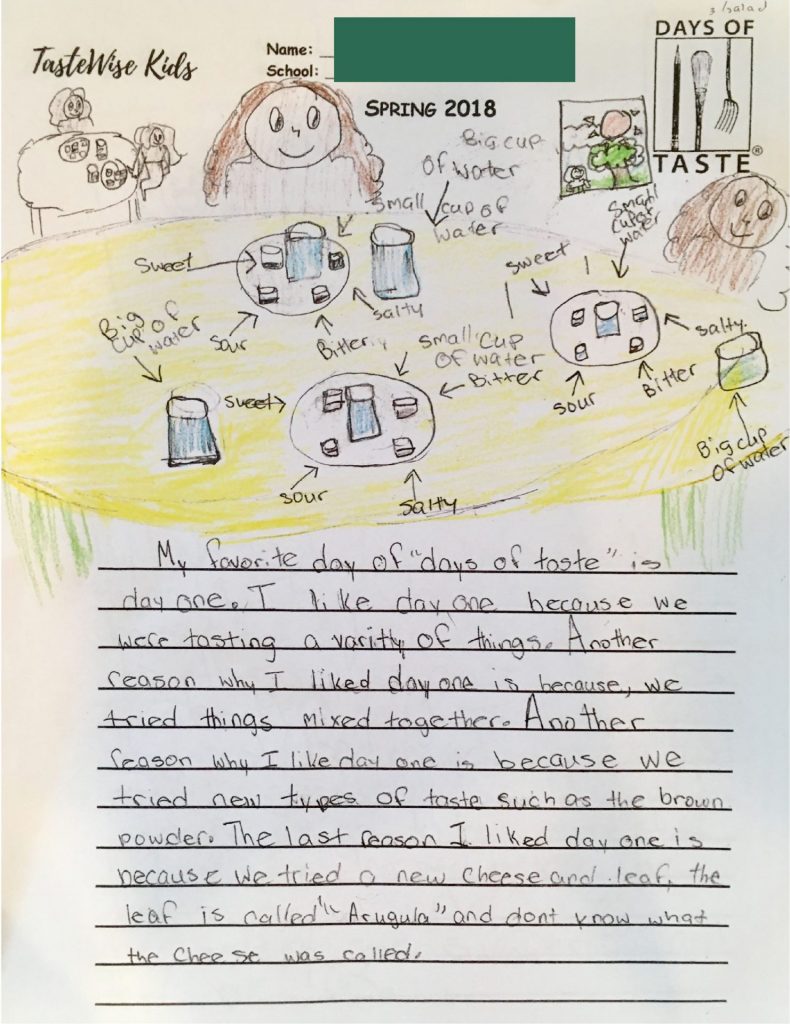 3 /salad
DAYS OF
TASTE®
TasteWise Kids
Name:
School:
SPRING 2018
Big cup
of water
small cup of
water
small
cup of
water
sweet
sweet
salty
salty
Big
cup of
water
sour
Bitter
small cup
of water
Bitter
sweet
sour
Bitter
sour
salty
Big cup
of water
My favorite day of "days of taste" is
day one. I like day one because we
were tasting a varitty of things. Another
reason why I liked day one is because, we
tried things mixed together. Another
reason why I like day one is because we
tried new types of taste such as the brown
powder. The last reason I liked day one is
because we tried a new cheese and leaf, the
leaf is called "Arugula" and dont know what
the cheese was called.